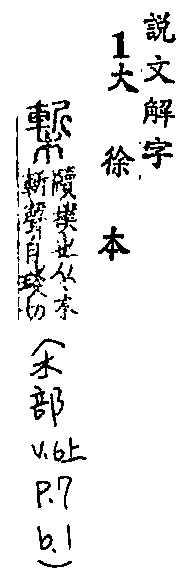 說文解字
1大徐本
槧
牘樸也从木
斬聲自琰切
(木部
v.6上
P.7
b.1)